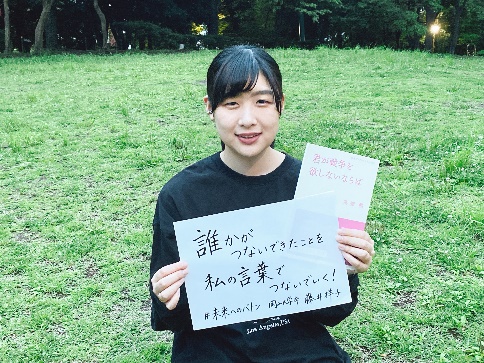 君が戦争を
欲しないならば
誰かが
つないできたことを
私の言葉で
つないでいく!
#未来へのバトン
Los Angeles, USA